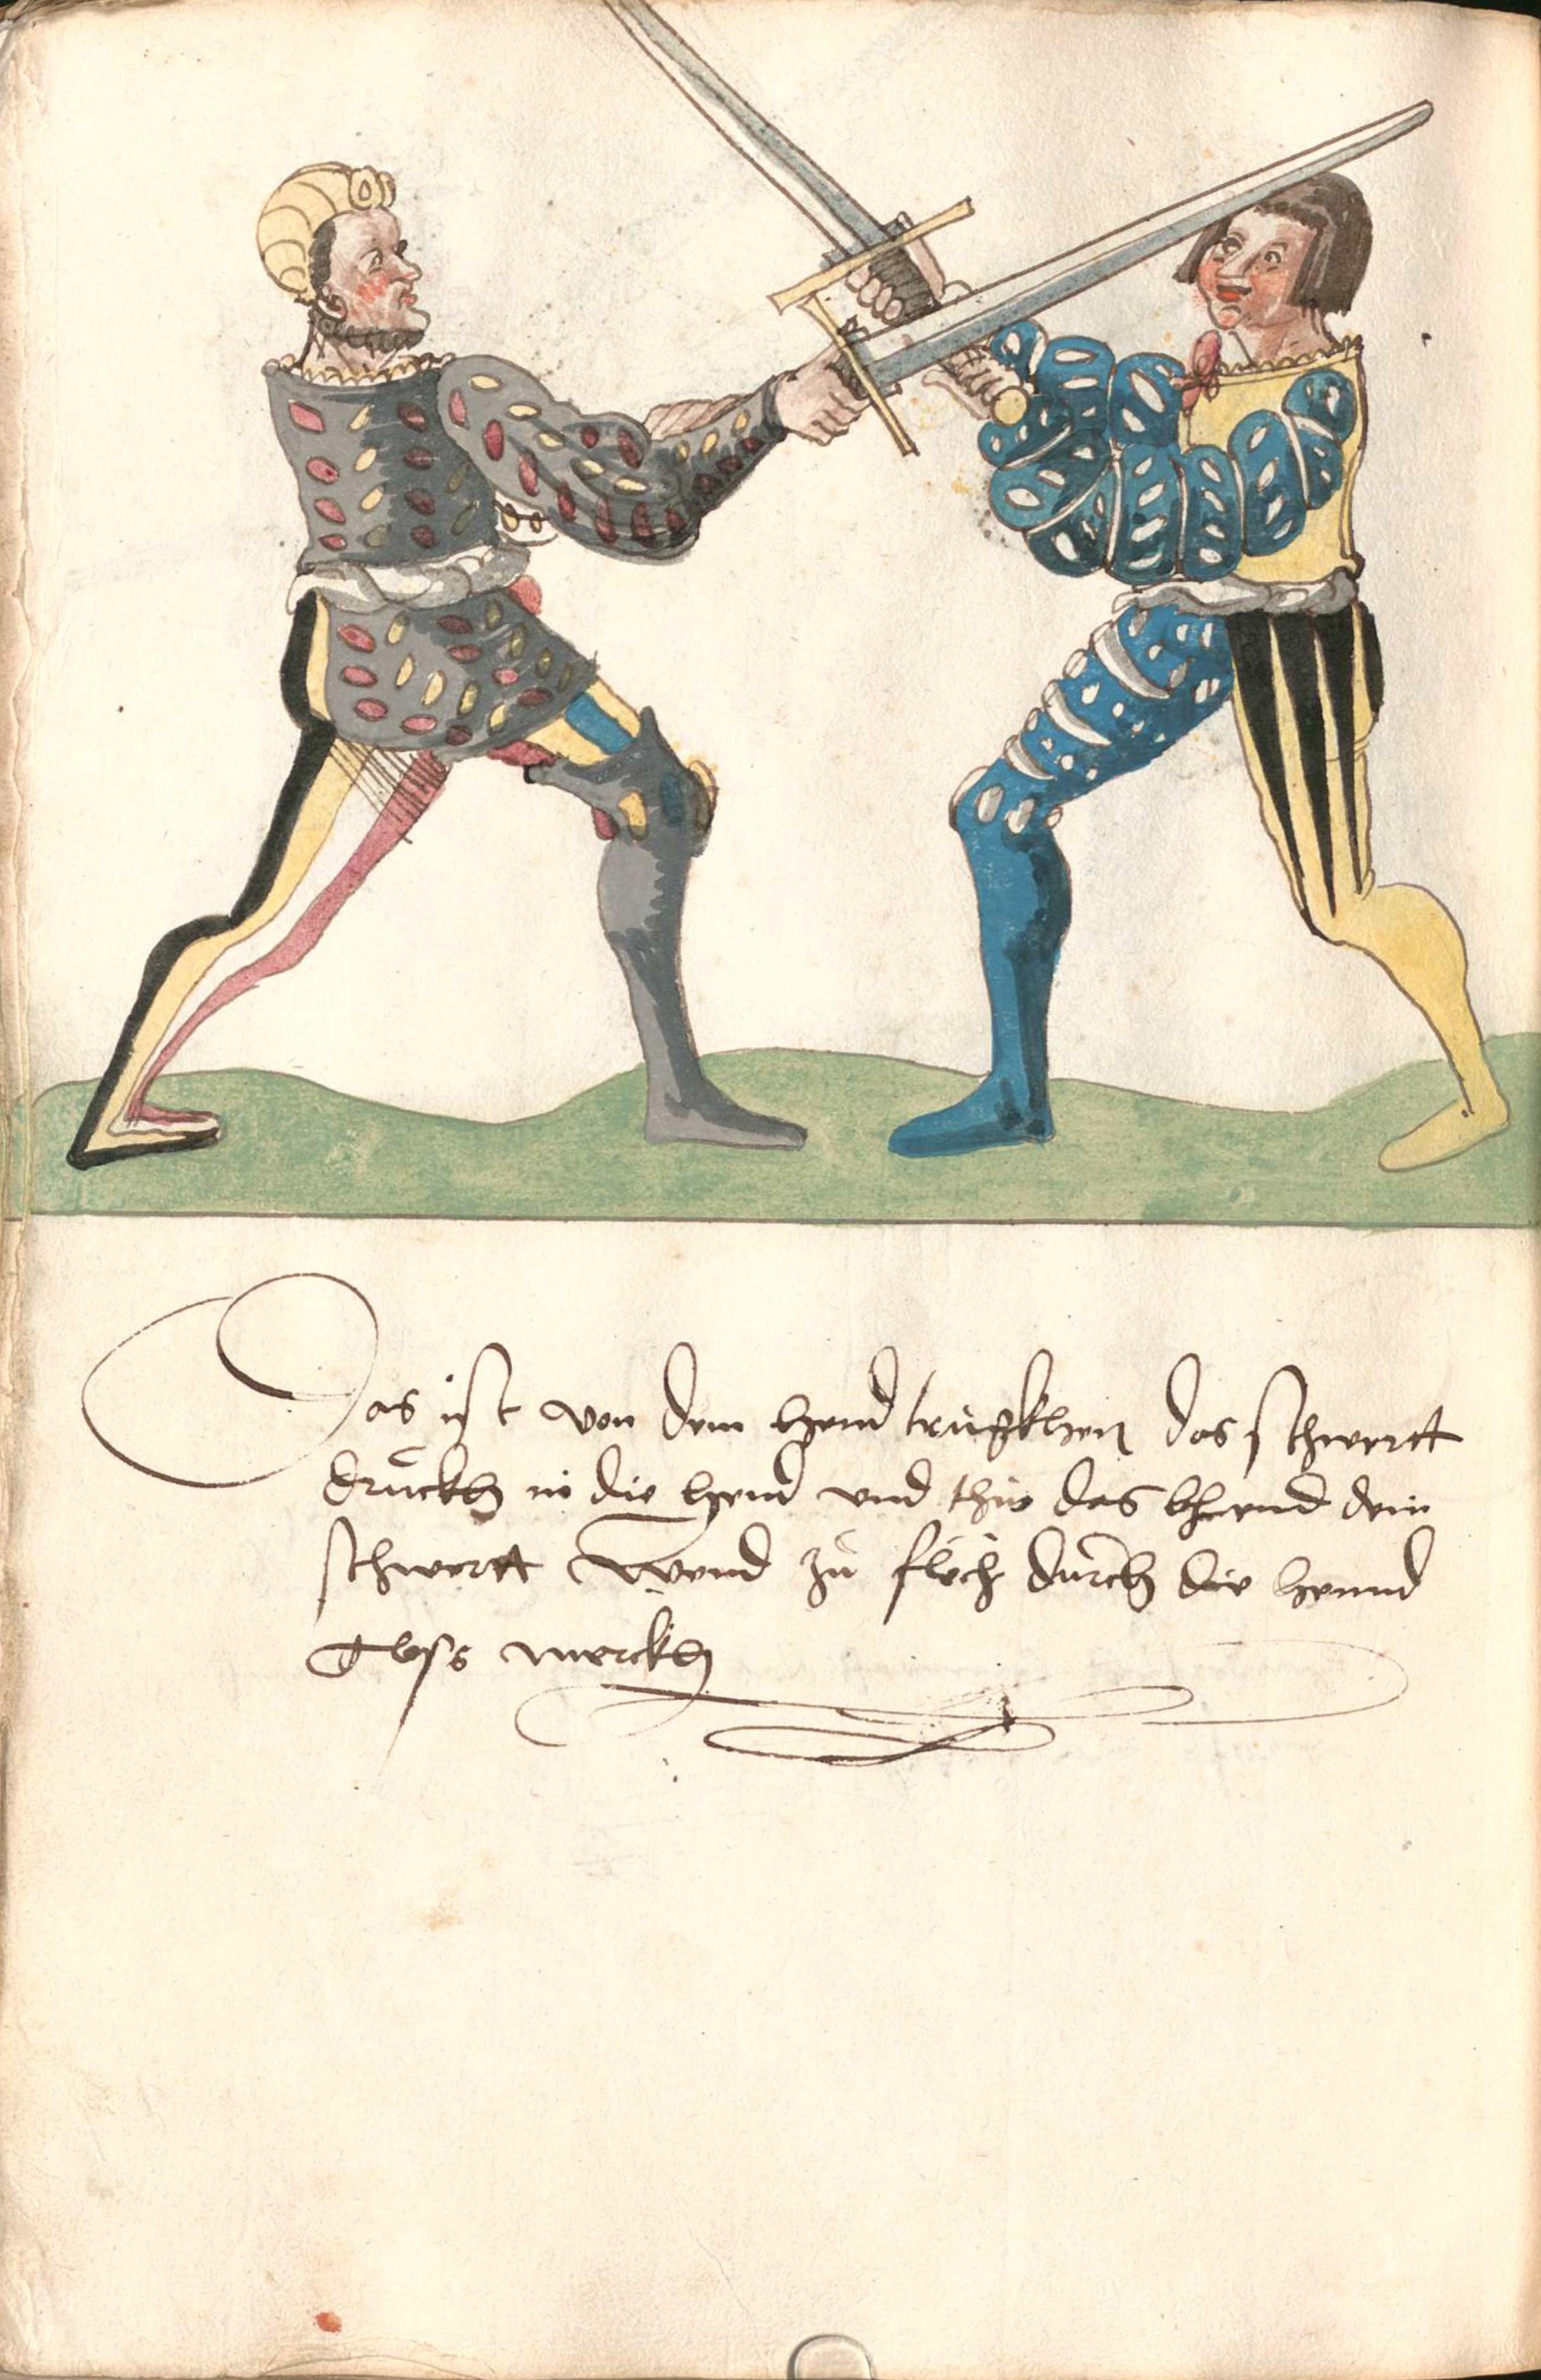 Das ist von dem hend trugkhen das schwertt
druckh in die hend vnd thue das bhend dein
schwertt wend zu flech durch die hennd
Gloss merckh